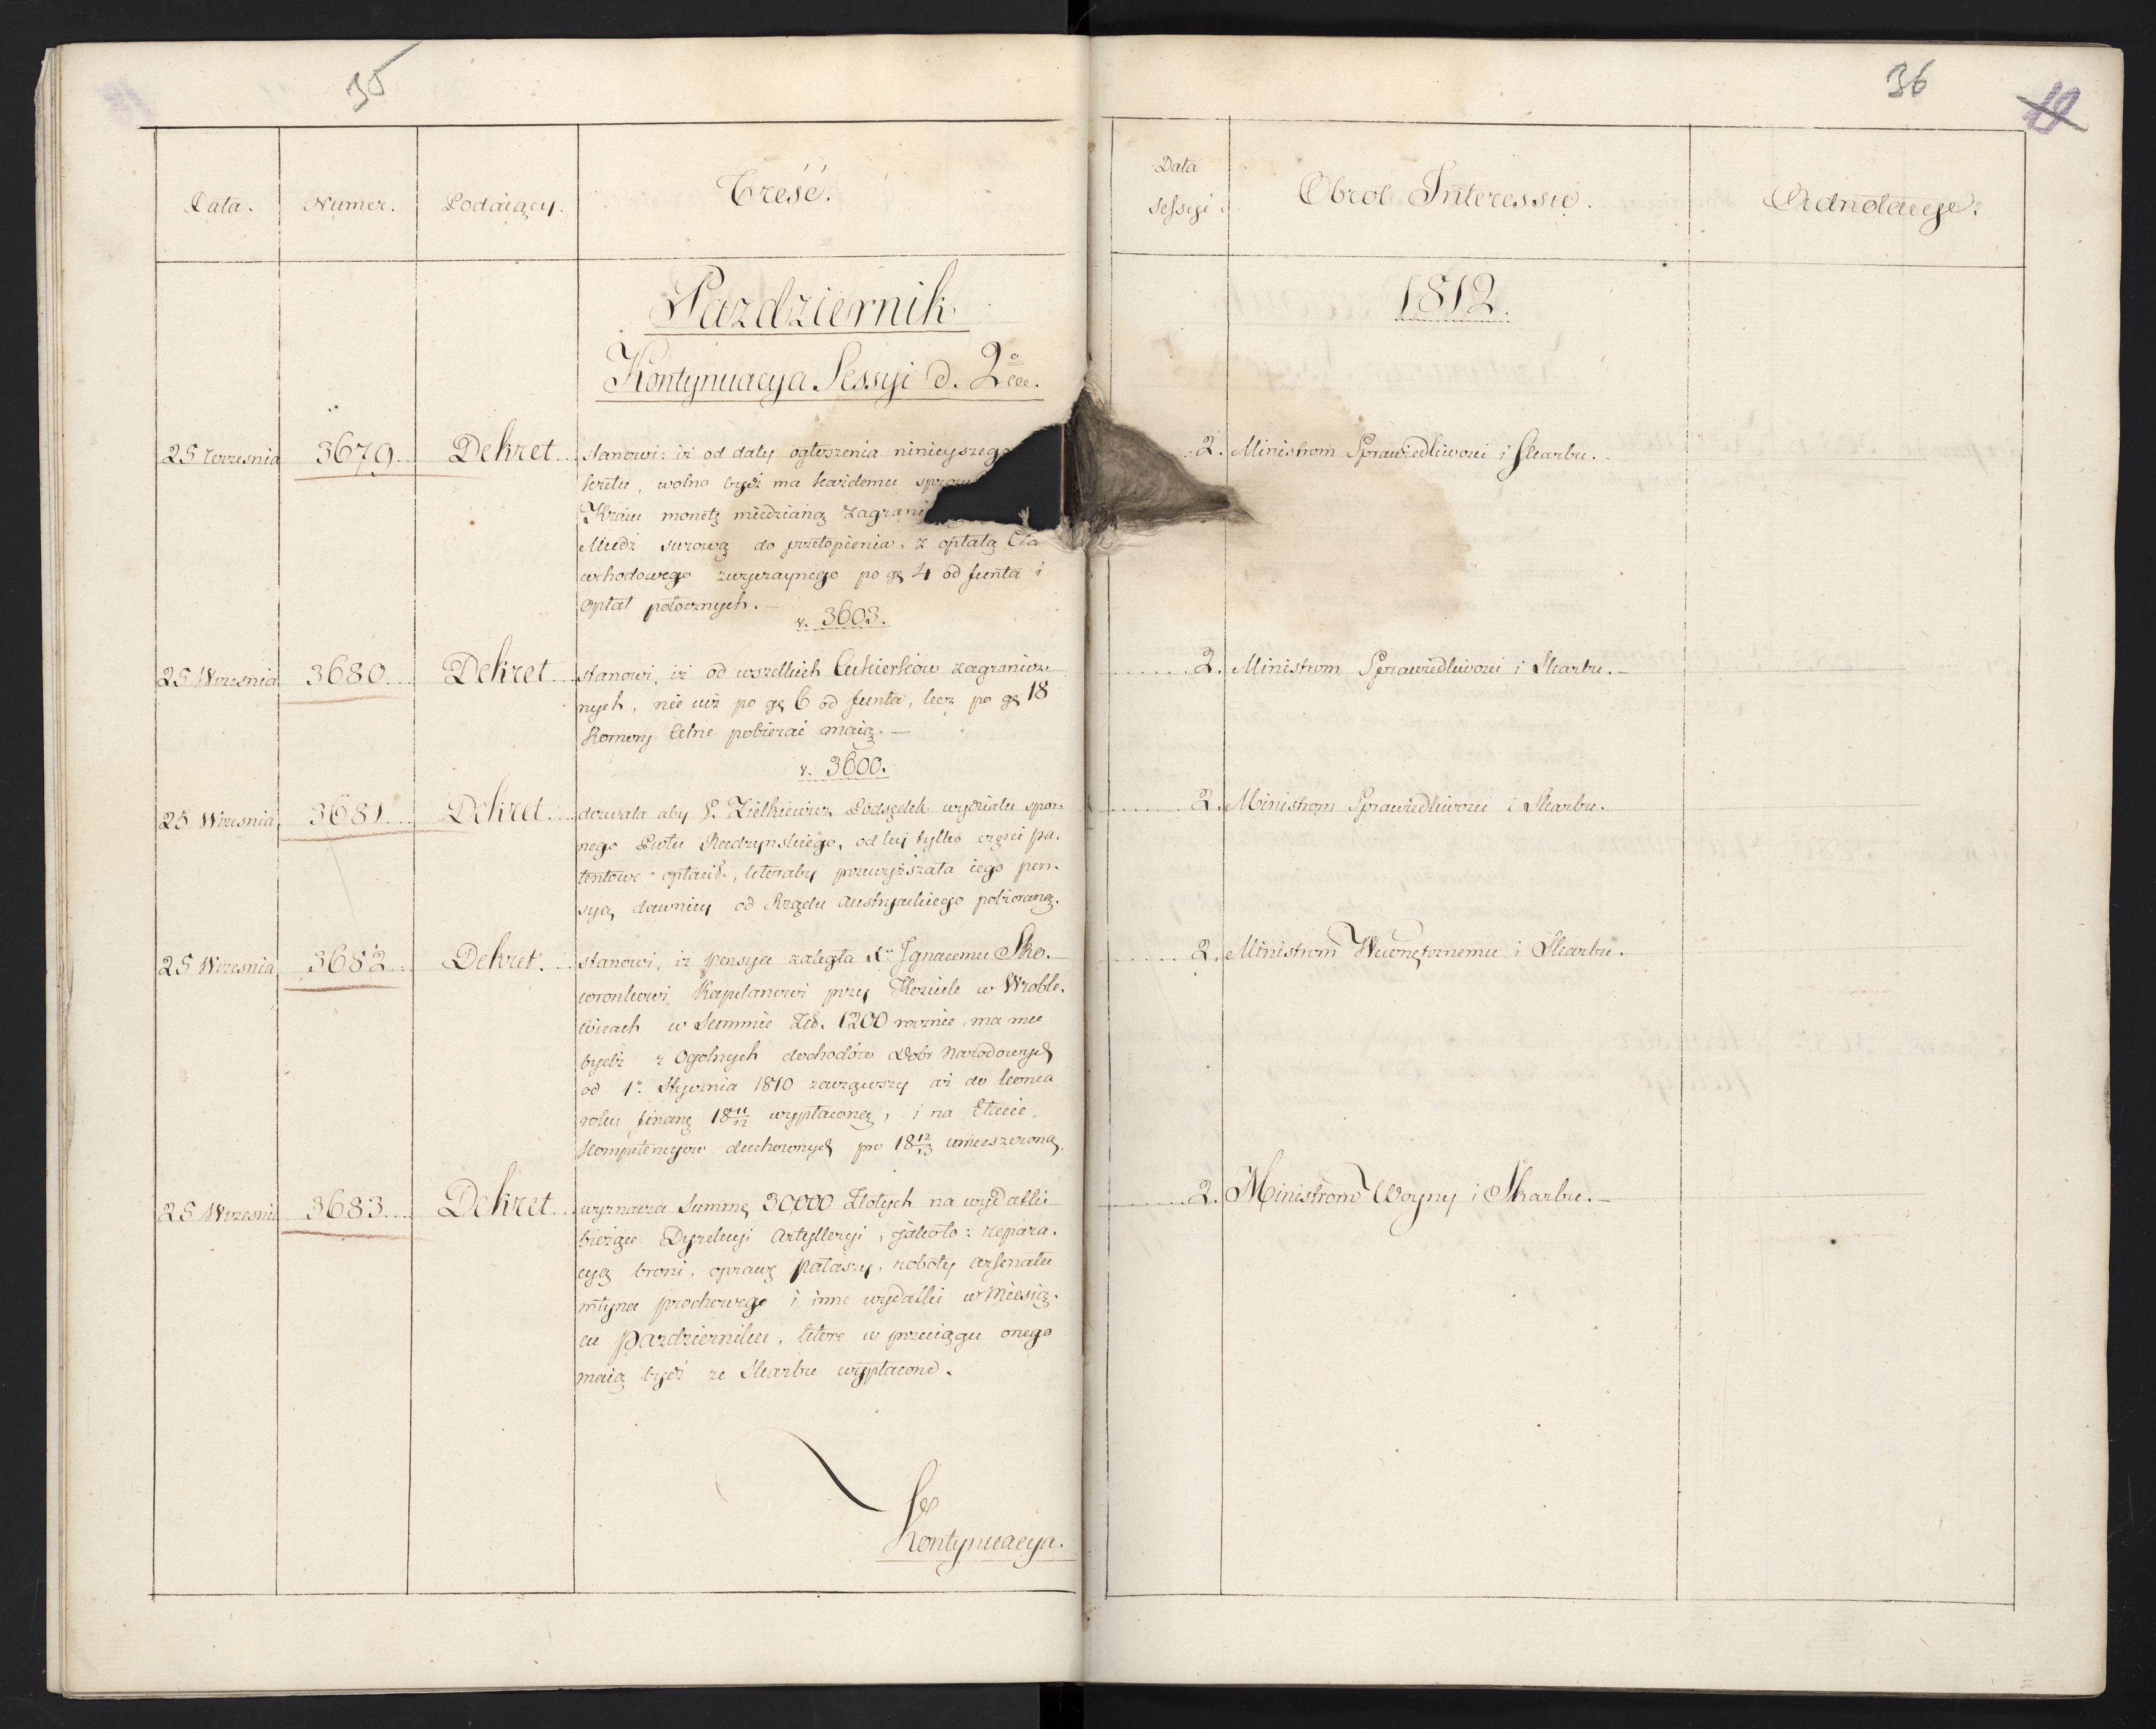 35
Data.
Numer.
Podaiący.
Treść.
Pazdziernik.
Kontynuacya Sessyi d. 2
25 Września
3679
Dekret
stanowi: iż od daty ogłoszenia ninieyszego
kretu, wolno bydź ma każdemu
Kraiu monetę miedzianą
Miedź surową do przetopienia, z opłatą Cła
wchodowego zwyczaynego po gę 4 od funta i
Opłat potocznych.
v. 3603.
25 Wrzesnia
3680
Dekret
stanowi, iż od wszelkich Cukierków zagranicz
nych, nie iuż po gę 6 od funta, lecz po gę 18
Komory Celne pobierać maią. —
v. 3600.
25 Wrzesnia
3681
Dekret
dozwala aby P. Ziółkiewicz Podsędek wydziału spor-
nego Pwtu Radzynskiego, od tey tylko części pa-
tentowe opłacił, któraby przewyższała iego pen-
syą, dawniey od Rządu Austryackiego pobieraną.
25 Wrzesnia
3682
Dekret
stanowi, iż pensya zaległa X. Ignacemu Sko-
wronkowi Kapelanowi przy Kosciele w Wroble-
wicach w Summie Złł. 1200 rocznie, ma mu
bydź z Ogolnych dochodów Dobr Narodowych
od 1o Stycznia 1810 zacząwszy aż do konca
roku finanę 18 11/12 wypłaconą, i na Etacie
Kompetencyow duchownych pro 18 12/13 umieszczoną.
25 Wrzesnia
3683
Dekret
wyznacza Summę 30000 Złotych na wydatki
bieżące Dyrekcyi Artylleryi, jakoto: repara-
cyą broni, oprawę Pałaszy, roboty Arsenału
młyna prochowego i inne wydatki w Miesią-
cu Pazdzierniku, które w przeciągu onego
maią bydź ze Skarbu wypłacone.
Kontynuacya.
36
19
Data
Sessyi
Obrot Interessu.
Adnotacye.
1812.
2. Ministrom Sprawiedliwości i Skarbu.
2. Ministrom Sprawiedliwości i Skarbu. —
2. Ministrom Sprawiedliwości i Skarbu.
2. Ministrom Wewnętrznemu i Skarbu.
2. Ministrom Woyny i Skarbu. —